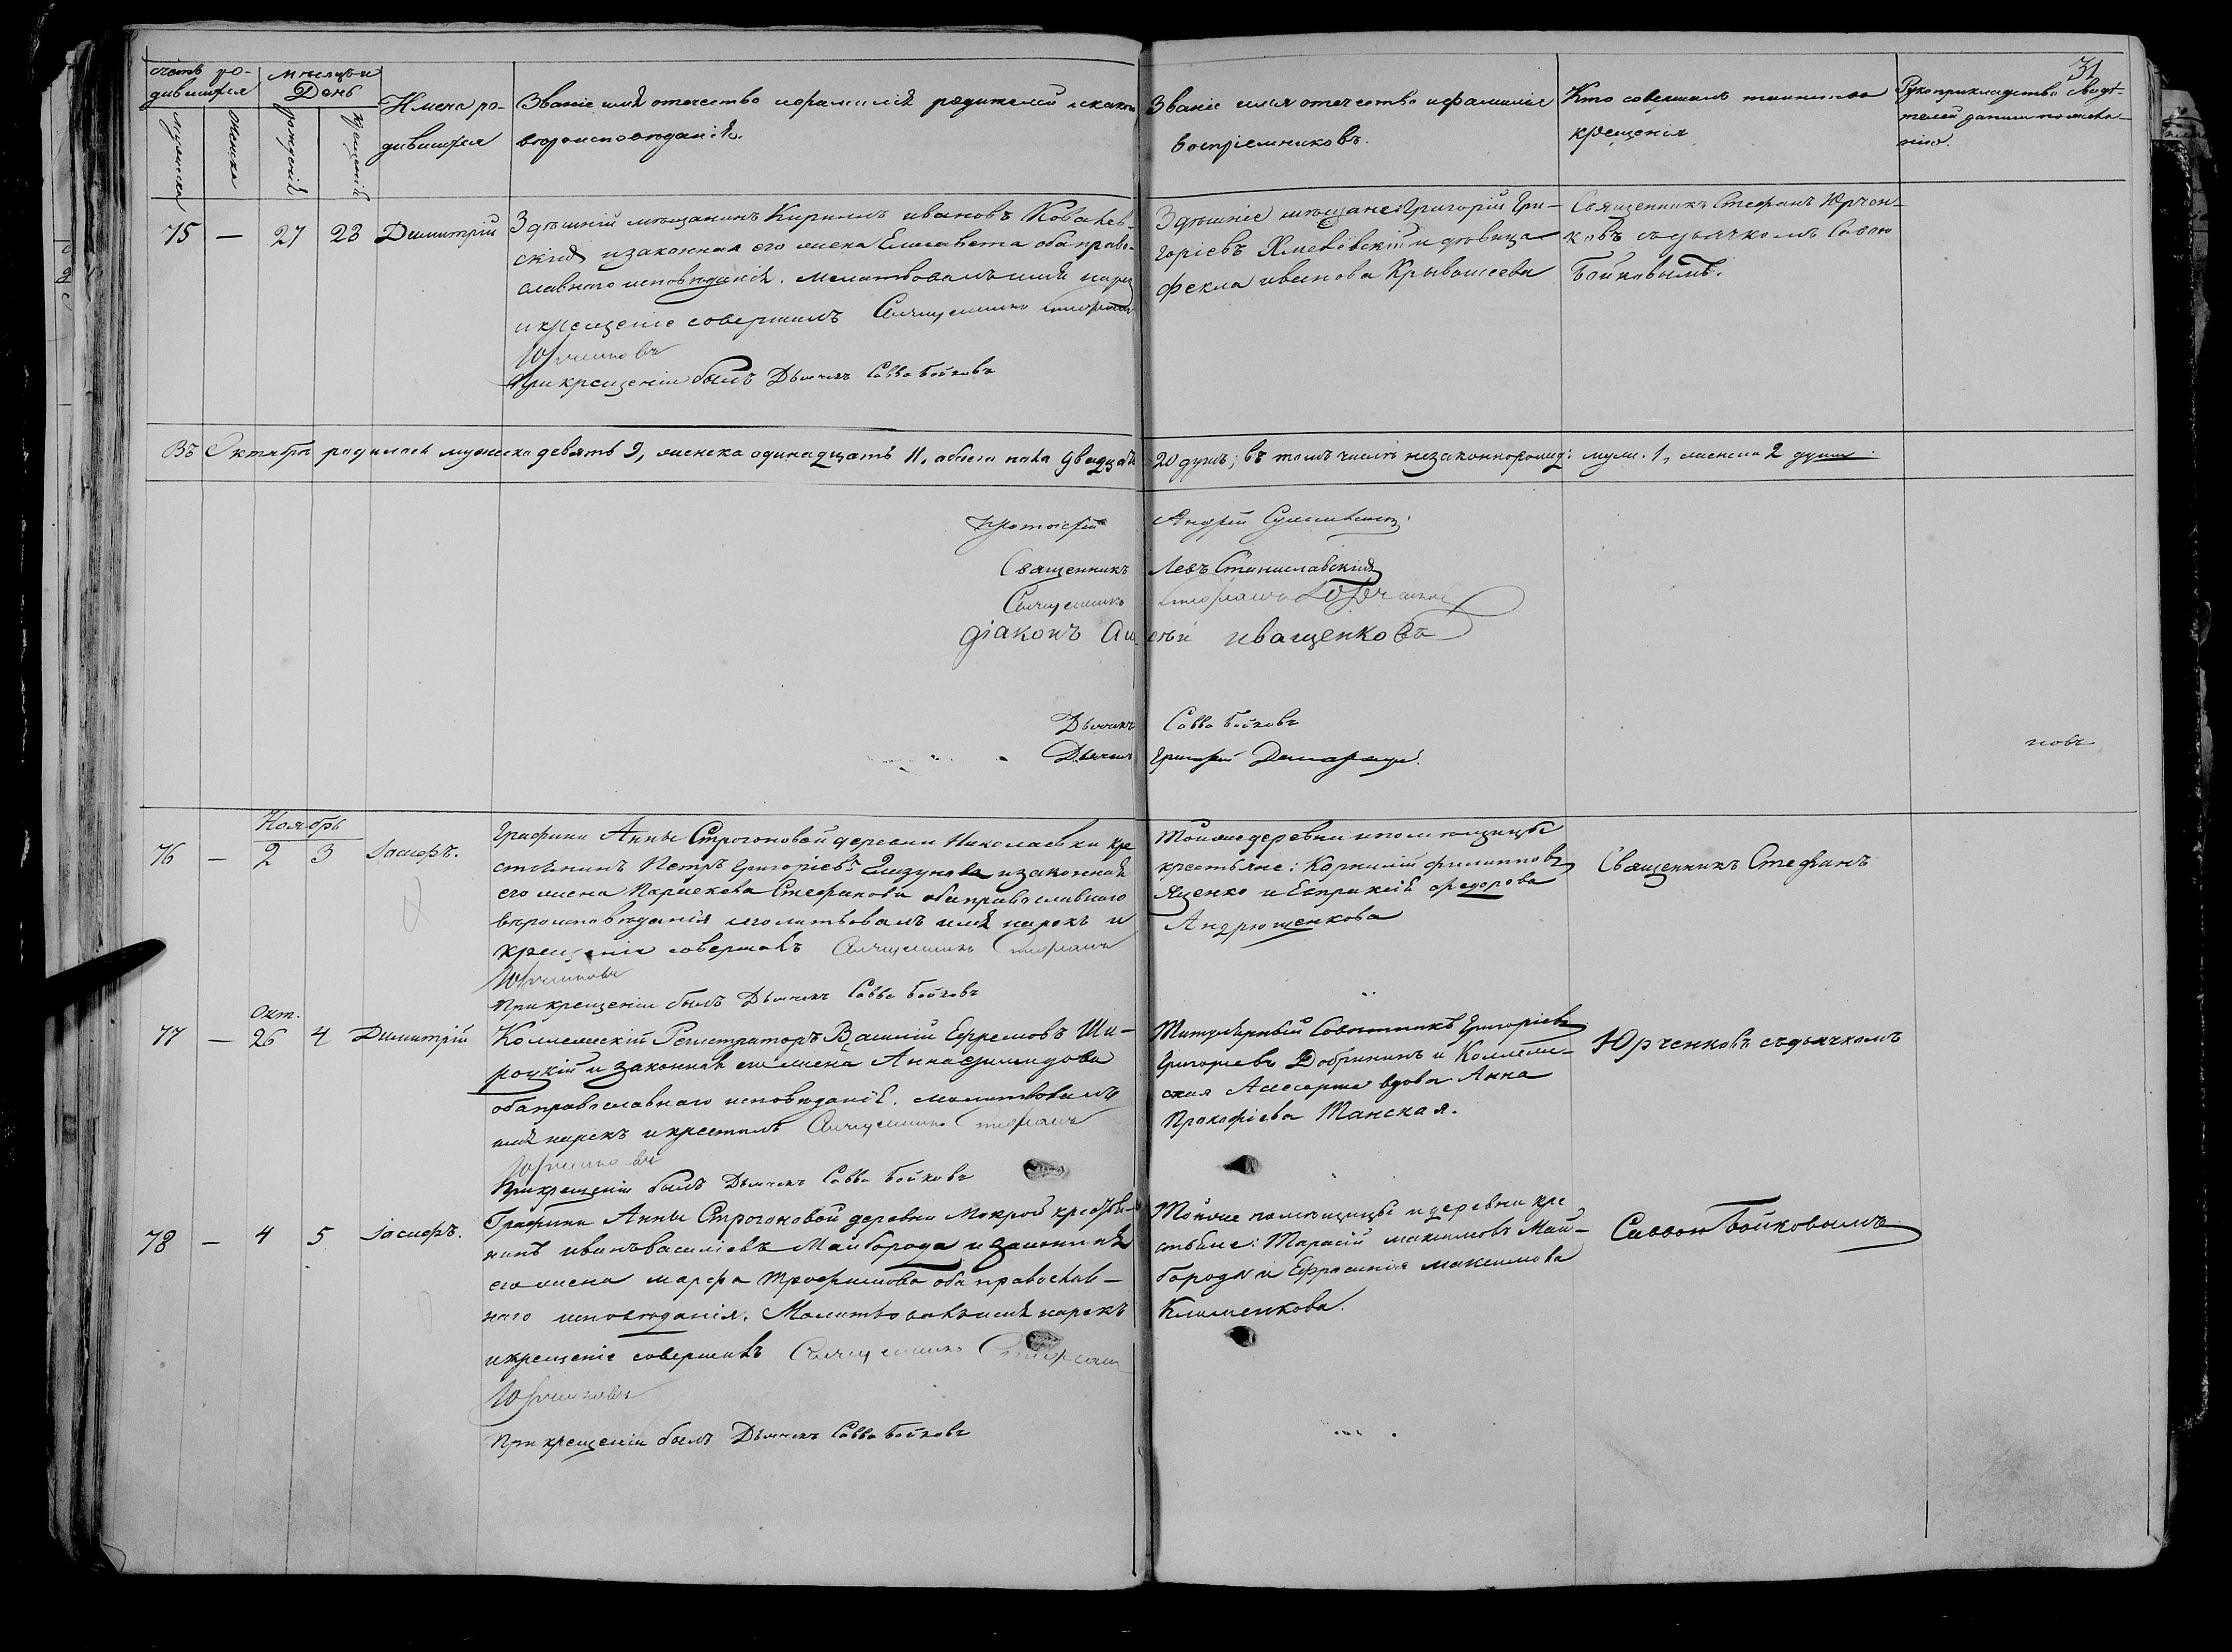 31
счетъ ро-
дившихся
мѣсяцъ и
День
мужеска
женска
рожденія
крещенія
Имена ро-
дившихся
Званіе имя отечество и фамилія родителей и какого
вѣроисповѣданія.
Званіе имя отечество и фамилія
воспріемниковъ.
Кто совершалъ таинство
крещенія
Рукоприкладство свидѣ-
телей
75 — 27 28 Димитрій
Здѣшній мѣщанинъ Кириллъ Ивановъ Ковалев-
скій и законная его жена Елисавета оба право-
славнаго исповѣданія. Молитвовалъ имя нарек
и крещеніе совершилъ Священникъ Стефанъ
Юрченковъ
При крещеніи былъ Дьячекъ Савва Бойковъ
Здѣшніе мѣщане: Григорій Гри-
горіевъ Хмелѣвскій и дѣвица
Фекла Иванова Кривошеева
Священникъ Стефанъ Юрчен-
ковъ съ дьячкомъ Саввою
Бойковымъ.
Въ Октябрѣ родилось мужеска девять 9, женска одинадцать 11, обоего пола двадцать
20 душъ; въ томъ числѣ незаконнорожд: муж. 1, женска 2 души.
Протоіерей Андрей
Священникъ Левъ Станиславскій
Священникъ Стефанъ Юрченковъ
Діаконъ Иващенковъ
Дьячекъ Савва Бойковъ
Дьячекъ Григорій
новъ
Ноябрь
76 — 2 3 Іосифъ.
Графини Анны Строгоновой деревни Николаевки кре
стьянинъ Петръ Григоріевъ и законная
его жена Параскева Стефанова оба православнаго
вѣроисповѣданія молитвовалъ имя нарекъ и
крещеніе совершалъ Священникъ Стефанъ
Юрченковъ
При крещеніи былъ Дьячекъ Савва Бойковъ
Тойже деревни и помѣщицы
крестьяне: Корнилій Филипповъ
Яценко и Евпраксія Федорова
Андрющенкова
Священникъ Стефанъ
Окт.
77 — 26 4 Димитрій
Коллежскій Регистраторъ Василій Ефремовъ Ши-
роцкій и законная его жена Анна
оба православнаго исповѣданія. молитвовалъ
имя нарекъ и крестилъ Священникъ Стефанъ
Юрченковъ
При крещеніи былъ Дьячекъ Савва Бойковъ
Титулярный Совѣтникъ Григорій
Григорьевъ Добрининъ и Коллеж-
ская Асесорша вдова Анна
Прокофіева Танская.
Юрченковъ съ дьячкомъ
78 — 4 5 Іосифъ.
Графини Анны Строгоновой деревни Мокрой крестья-
нинъ Иванъ Василіевъ Майборода и законная
его жена Марфа Трофимова оба православ-
наго исповѣданія. Молитвовалъ имя нарекъ
и крещеніе совершилъ Священникъ Стефанъ
Юрченковъ
При крещеніи былъ Дьячекъ Савва Бойковъ
Тойже помѣщицы и деревни кре
стьяне: Тарасій Максимовъ Май-
борода и Ефросинія Максимова
Клименкова.
Саввою Бойковымъ